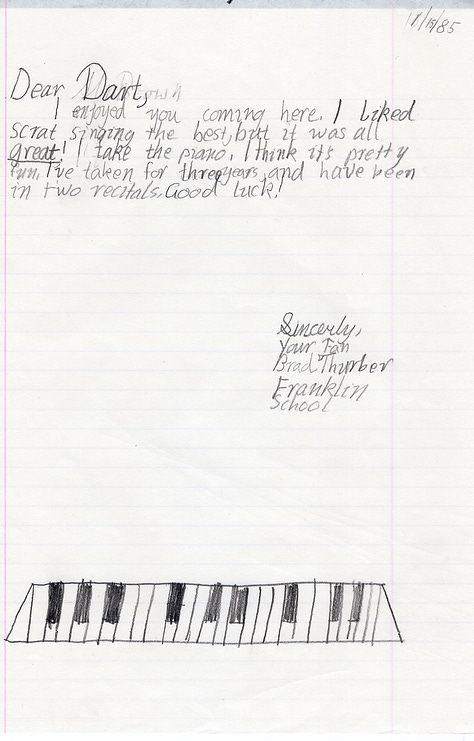 Dear Dart,
I enjoyed you coming here. I liked
scrat singing the best, but it was all
great! I take the piano. I think it's pretty
fun. I've taken for three years, and have been
in two recitals. Good luck!
Sincerly,
Your Fan
Brad Thurber
Franklin
School